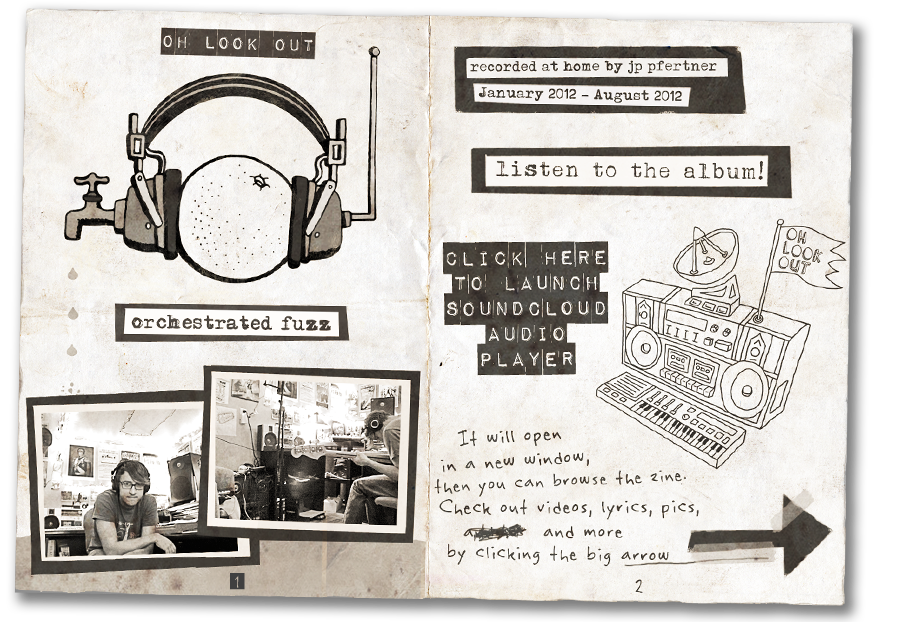 OH LOOK OUT
orchestrated fuzz
1
recorded at home by jp pfertner
January 2012 - August 2012
listen to the album!
CLICK HERE
TO LAUNCH
SOUNDCLOUD
AUDIO
PLAYER
OH
LOOK
OUT
It will open
in a new window,
then you can browse the zine.
Check out videos, lyrics, pics,
and more
by clicking the big arrow
2